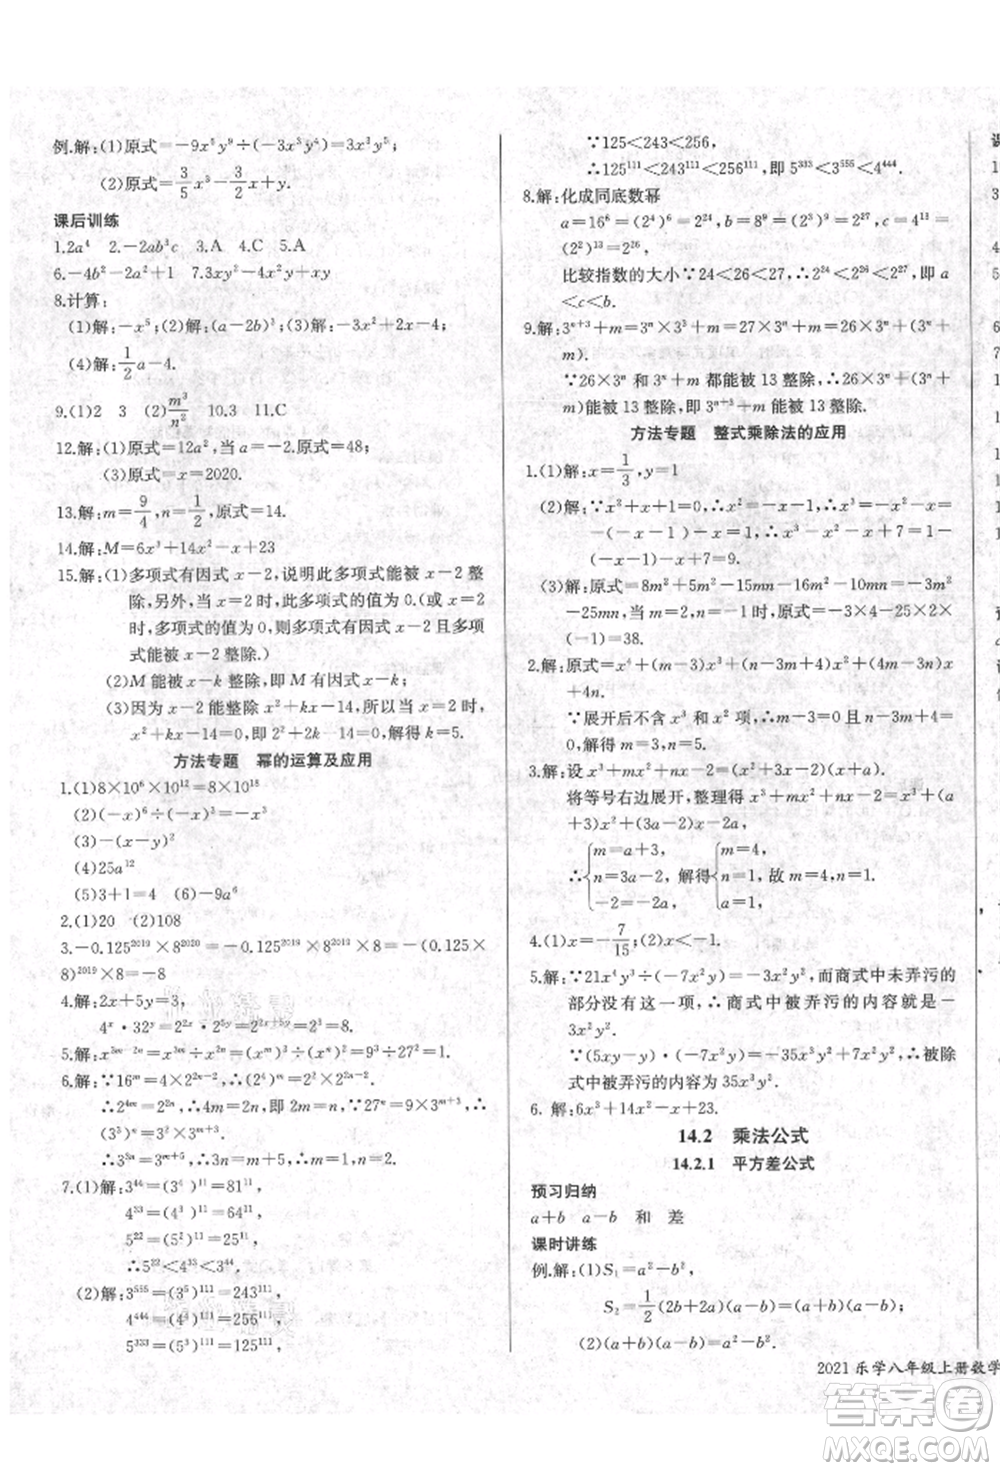 例.解:(1)原式=-9x⁵y⁹÷(-3x³y⁴)=3x²y⁵.
(2)原式=3/5x³-3/2x+y.
课后训练
1.2a⁴ 2.-2ab³c 3.A 4.C 5.A
6.-4b²-2a²+1 7.3xy+xy
8.计算:
(1)解:-x⁵;(2)解:(a-2b)³;(3)解:-3x²+4x-4;
(4)解:1/2a-4.
9.(1)2 3 (2)m³/n² 10.3 11.C
12.解:(1)原式=12a²,当a=-2,原式=48;
(3)原式=x=2020.
13.解:m=9/4,n=1/2,原式=14.
14.解:M=6x³+14x²-x+23
15.解:(1)多项式有因式x-2,说明此多项式能被x-2整
除,另外,当x=2时,此多项式的值为0.(或x=2
时,多项式的值为0,则多项式有因式x-2,此多项
式能被x-2整除.)
(2)M能被x-k整除,即M有因式x-k;
(3)因为x-2能整除x²+kx-14,所以当x=2时,
x²+kx-14=0,即4+2k-14=0,解得:k=5.
方法专题 幂的运算及应用
1.(1)8×10⁶×10¹²=8×10¹⁸
(2)(-x)⁶÷(-x)³=-x³
(3)-(x-y)²
(4)25a¹²
(5)3+1=4 (6)-9a⁶
2.(1)20 (2)108
3.-0.125²⁰¹⁹×8²⁰²⁰=-0.125²⁰¹⁹×8²⁰¹⁹×8=-(0.125×
8)²⁰¹⁹×8=-8
4.解:2x+5y=3,
4ˣ·32ʸ=2²ˣ·2⁵ʸ=2²ˣ⁺⁵ʸ=2³=8.
6.解:∵16ᵐ=4×2²ⁿ⁻²,∴(2⁴)ᵐ=2²×2²ⁿ⁻²,
7.(1)解:3⁴⁴=(3⁴)¹¹=81¹¹,
4³³=(4³)¹¹=64¹¹,
5²²=(5²)¹¹=25¹¹,
∴5²²<4³³<3⁴⁴.
(2)解:3⁵⁵⁵=(3⁵)¹¹¹=243¹¹¹,
4⁴⁴⁴=(4⁴)¹¹¹=256¹¹¹,
5³³³=(5³)¹¹¹=125¹¹¹,
∵125<243<256,
∴125¹¹¹<243¹¹¹<256¹¹¹,即5³³³<3⁵⁵⁵<4⁴⁴⁴
8.解:化成同底数幂
a=16⁶=(2⁴)⁶=2²⁴,b=8⁹=(2³)⁹=2²⁷,c=4¹³=
(2²)¹³=2²⁶,
比较指数的大小∵24<26<27,∴2²⁴<2²⁶<2²⁷,即a
<c<b.
9.解:3ⁿ⁺³+m=3ⁿ×3³+m=27×3ⁿ+m=26×3ⁿ+(3ⁿ+
m).
∵26×3ⁿ和3ⁿ+m都能被13整除,∴26×3ⁿ+(3ⁿ+
m)能被13整除,即3ⁿ⁺³+m能被13整除.
方法专题 整式乘除法的应用
1.(1)解:x=1/3,y=1
(2)解:∵x²+x+1=0,∴x²=-x-1,∴x³=-x²-x=
-(-x-1)-x=1,∴x³-x²-x+7=1-(-x-1)
-x+7=9.
(3)解:原式=8m²+2mn-15mn-10mn=-3mn
-25mn,当m=2,n=-1时,原式=8×4-25×2×(
-1)=38.
2.解:原式=x⁴+(m-3)x³+(n-3m+4)x²+(4m-3n)x
+4n.
∵展开后不含x³和x²项,∴m-3=0,n-3m+4=0,
解得:m=3,n=5.
3.解:设x³+mx²+nx-2=(x²+3x-2)(x+a).
将等号右边展开,整理得x³+mx²+nx-2=x³+(a
+3)x²+(3a-2)x-2a,
∴{m=a+3, n=3a-2, -2a=-2, 解得{m=4, n=1, a=1, 故m=4,n=1.
4.(1)x=-7/15;(2)x<-1.
5.解:∵21x⁴y³÷(-7x²y)=-3x²y²,而商式中未弄污的
部分没有这一项,∴商式中被弄污的内容就是-
3x²y².
∵(5xy-y)·(-7x²y)=-35x³y²+7x²y²,∴被除
式中被弄污的内容为35x³y².
6. 解:6x³+14x²-x+23.
14.2 乘法公式
14.2.1 平方差公式
预习归纳
a+b a-b 和 差
课时讲练
例.解:(1)S₁=a²-b²,
S₂=1/2(2b+2a)(a-b)=(a+b)(a-b);
(2)(a+b)(a-b)=a²-b².
2021乐学八年级上册数学
答案圈
MXQE.COM